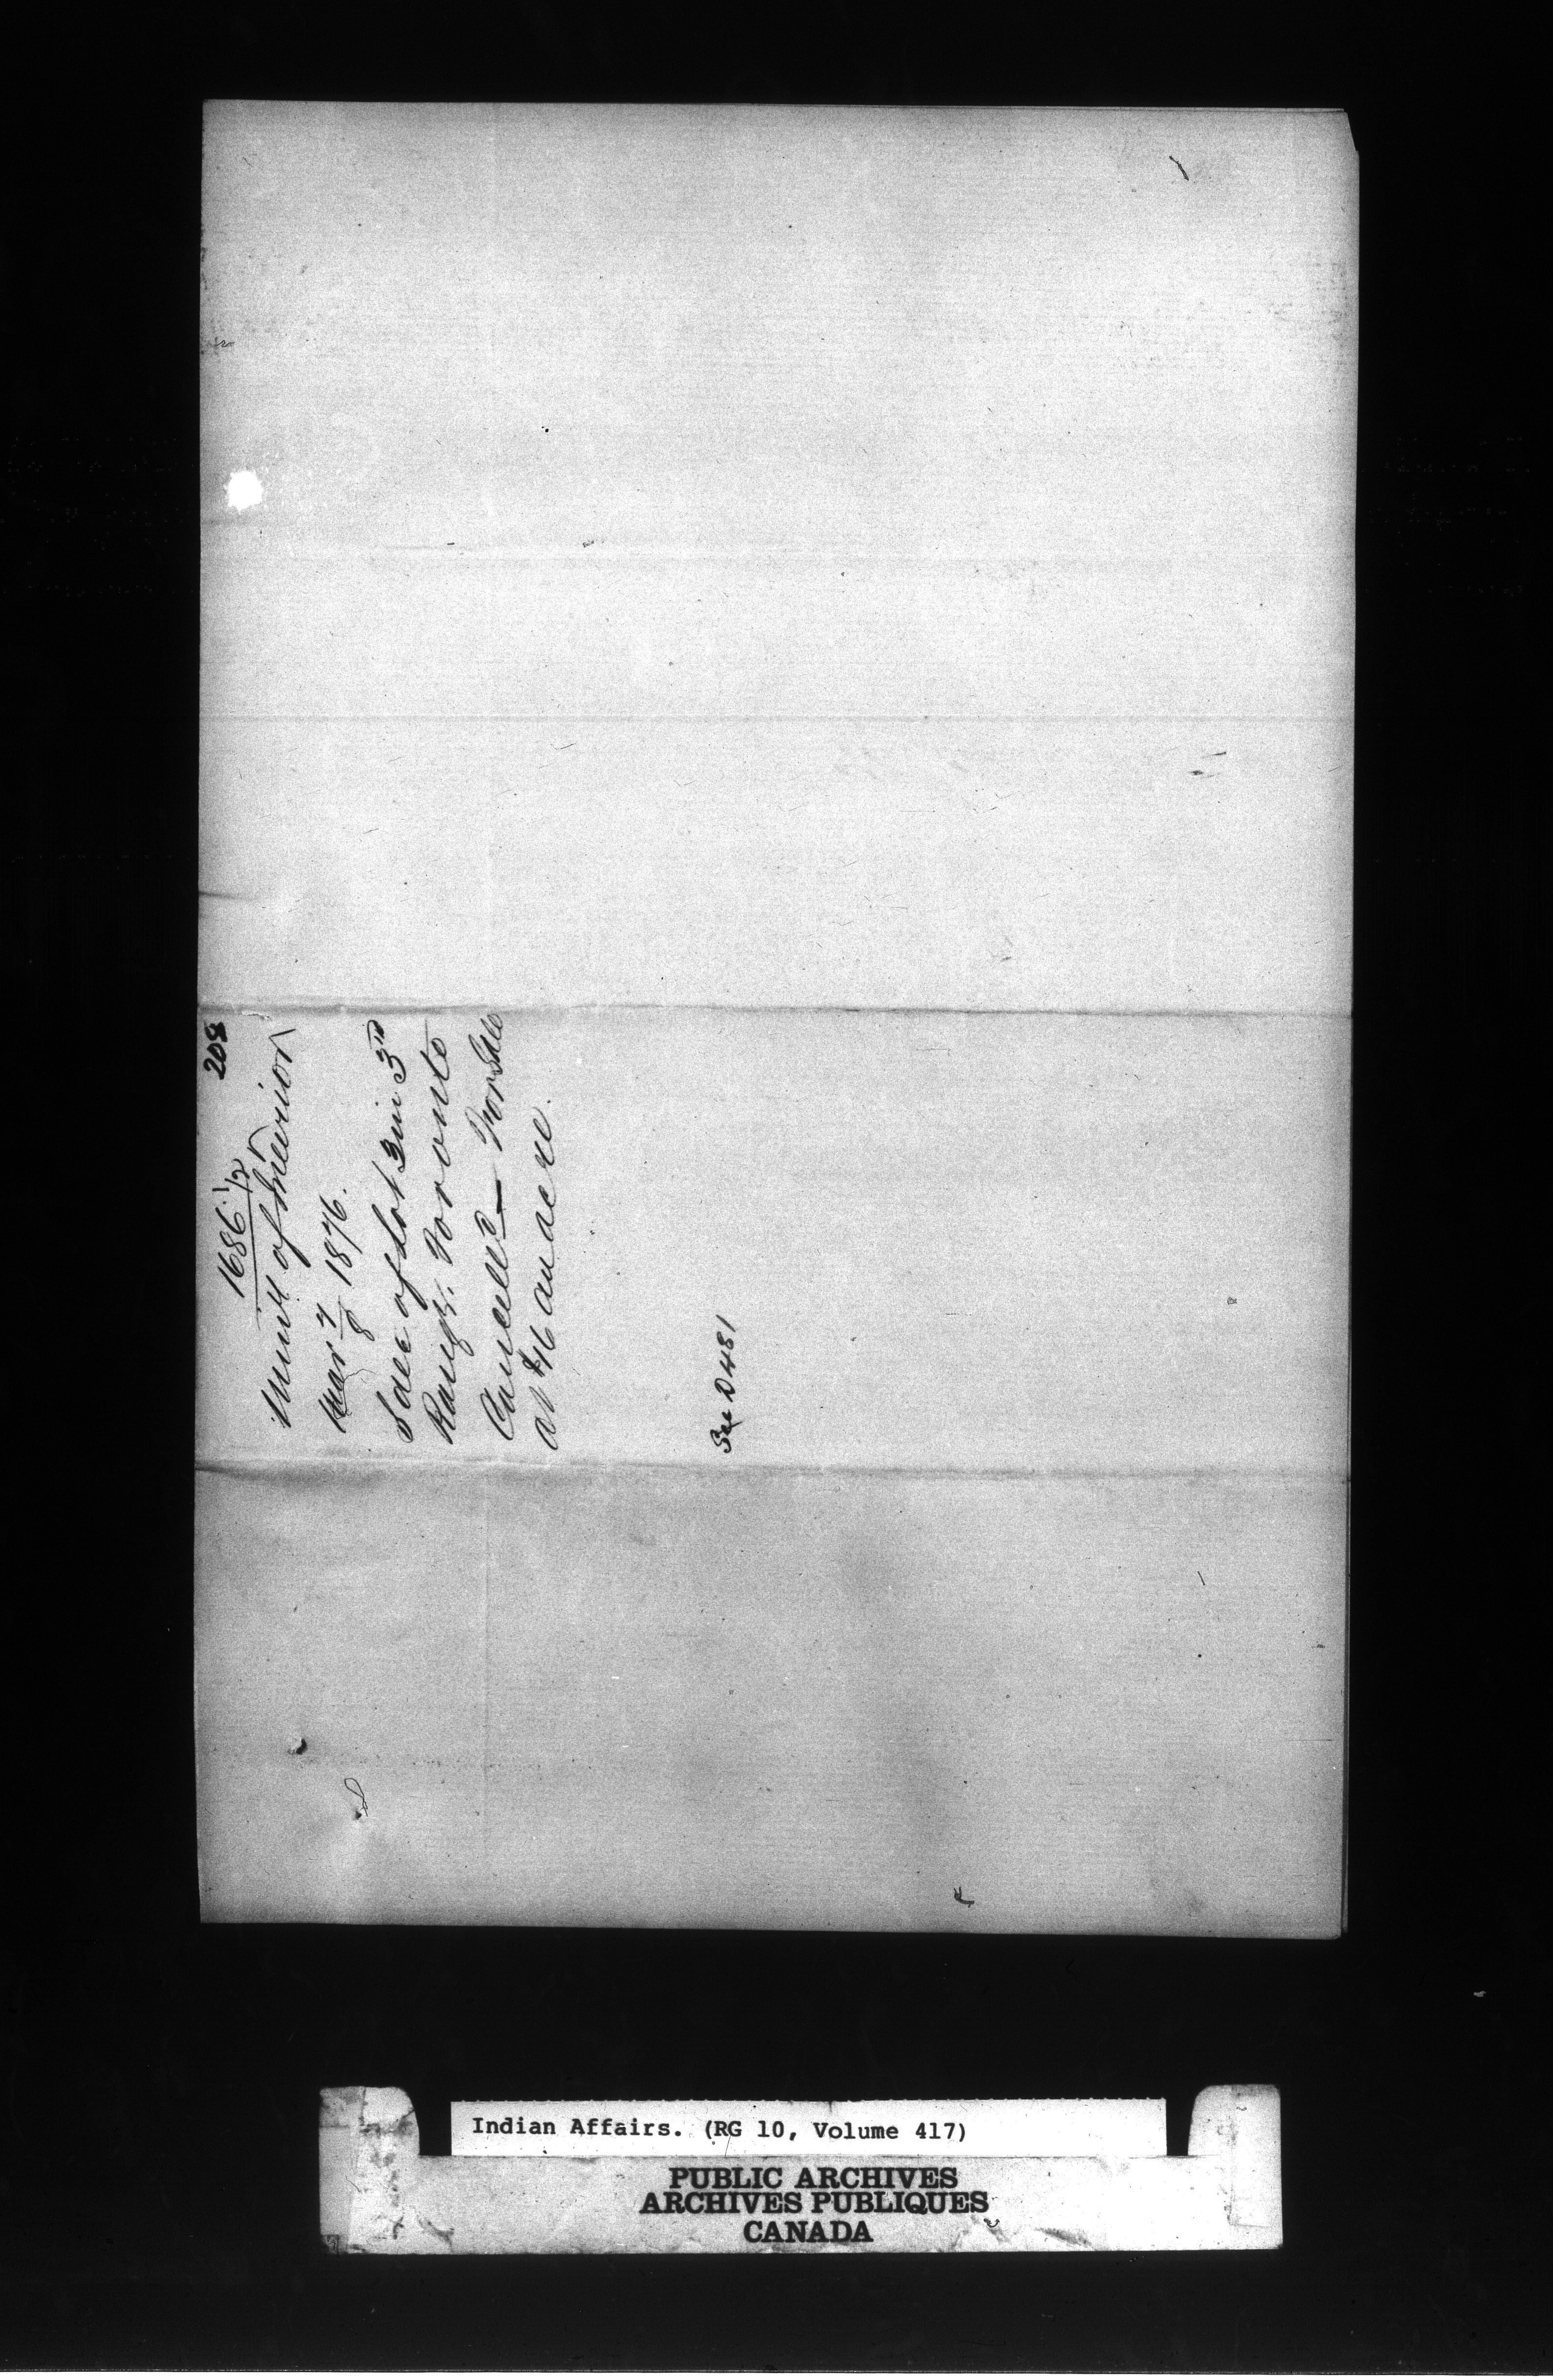 208
1686 1/2
Minr of Interior
Mar 7/8 1876.
Sale of Lot 3 in 3rd
Range. Toronto
Cancelled — For Sale
at $16 an acre.
See D 481
Indian Affairs. (RG 10, Volume 417)
PUBLIC ARCHIVES
ARCHIVES PUBLIQUES
CANADA